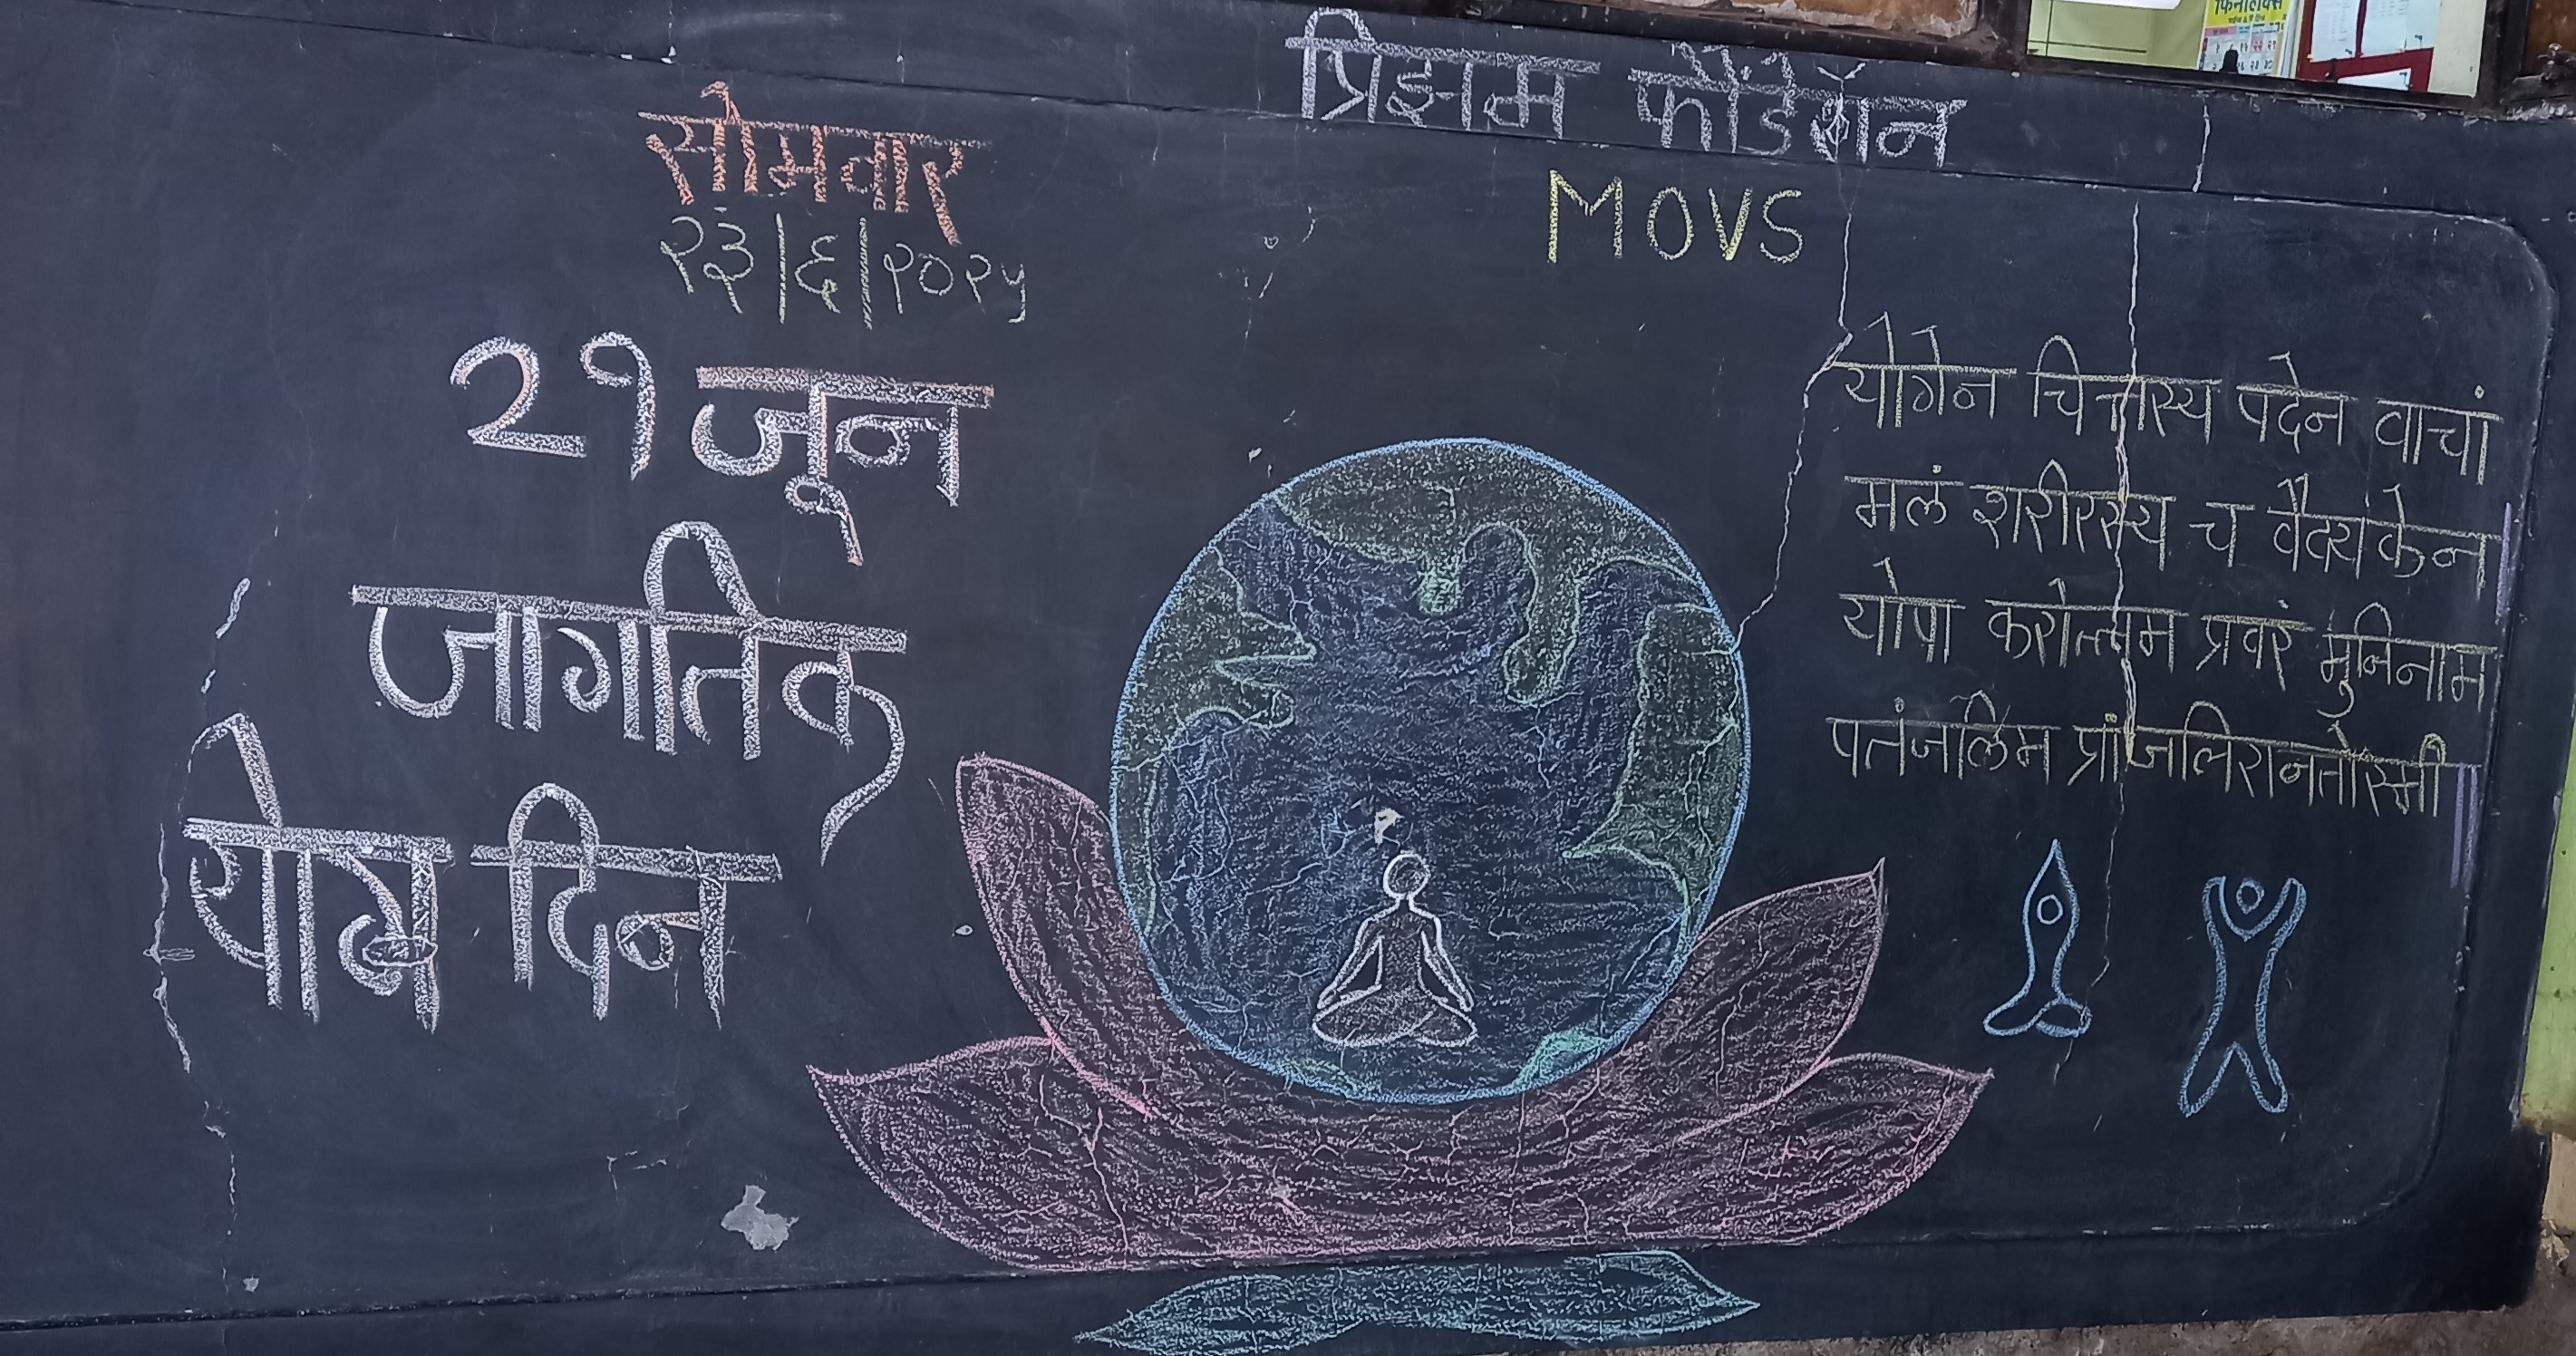 प्रिझम फौंडेशन
MOVS
सोमवार
२३|६|२०२५
२१ जून
जागतिक
योग दिन
योगेन चित्तस्य पदेन वाचां
मलं शरीरस्य च वैद्यकेन
योपा करोत्तम प्रवरं मुनिनाम
पतंजलिम प्रांजलिरानतोस्मी